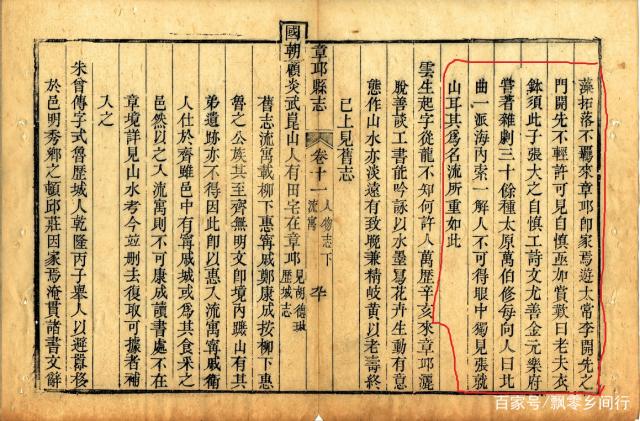 藻拓落不羈來章邱即家焉遊太常李開先之
門開先不輕許可見自慎亟加賞歎曰老夫衣
鉢須此子張大之自慎工詩文尤善金元樂府
嘗著雜劇三十餘種太原萬伯修每向人曰北
曲一派海內索一解人不可得眼中獨見張就
山耳其爲名流所重如此
雲生起字從龍不知何許人萬歷辛亥來章邱灑
脫善談工書能吟詠以水墨寫花卉生動有意
態作山水亦淡遠有致晚兼精岐黃以老壽終
已上見舊志
章邱縣志 卷十一 人物志下 流寓
國朝顧炎武崑山人有田宅在章邱見胡德琳歷城志
舊志流寓載柳下惠甯戚鄭康成按柳下惠
魯之公族其至齊無明文即境內山有其
弟遺跡亦不得因此即以惠入流寓甯戚衛
人仕於齊雖邑中有甯戚城或爲其食采之
邑然以之入流寓則不可康成讀書處不在
章境詳見山水考今並刪去復取可據者補
入之
朱曾傳字式魯歷城人乾隆丙子舉人以避囂移
於邑明秀鄉之頓邱莊因家焉淹貫諸書文辭
百家号/飘零乡间行